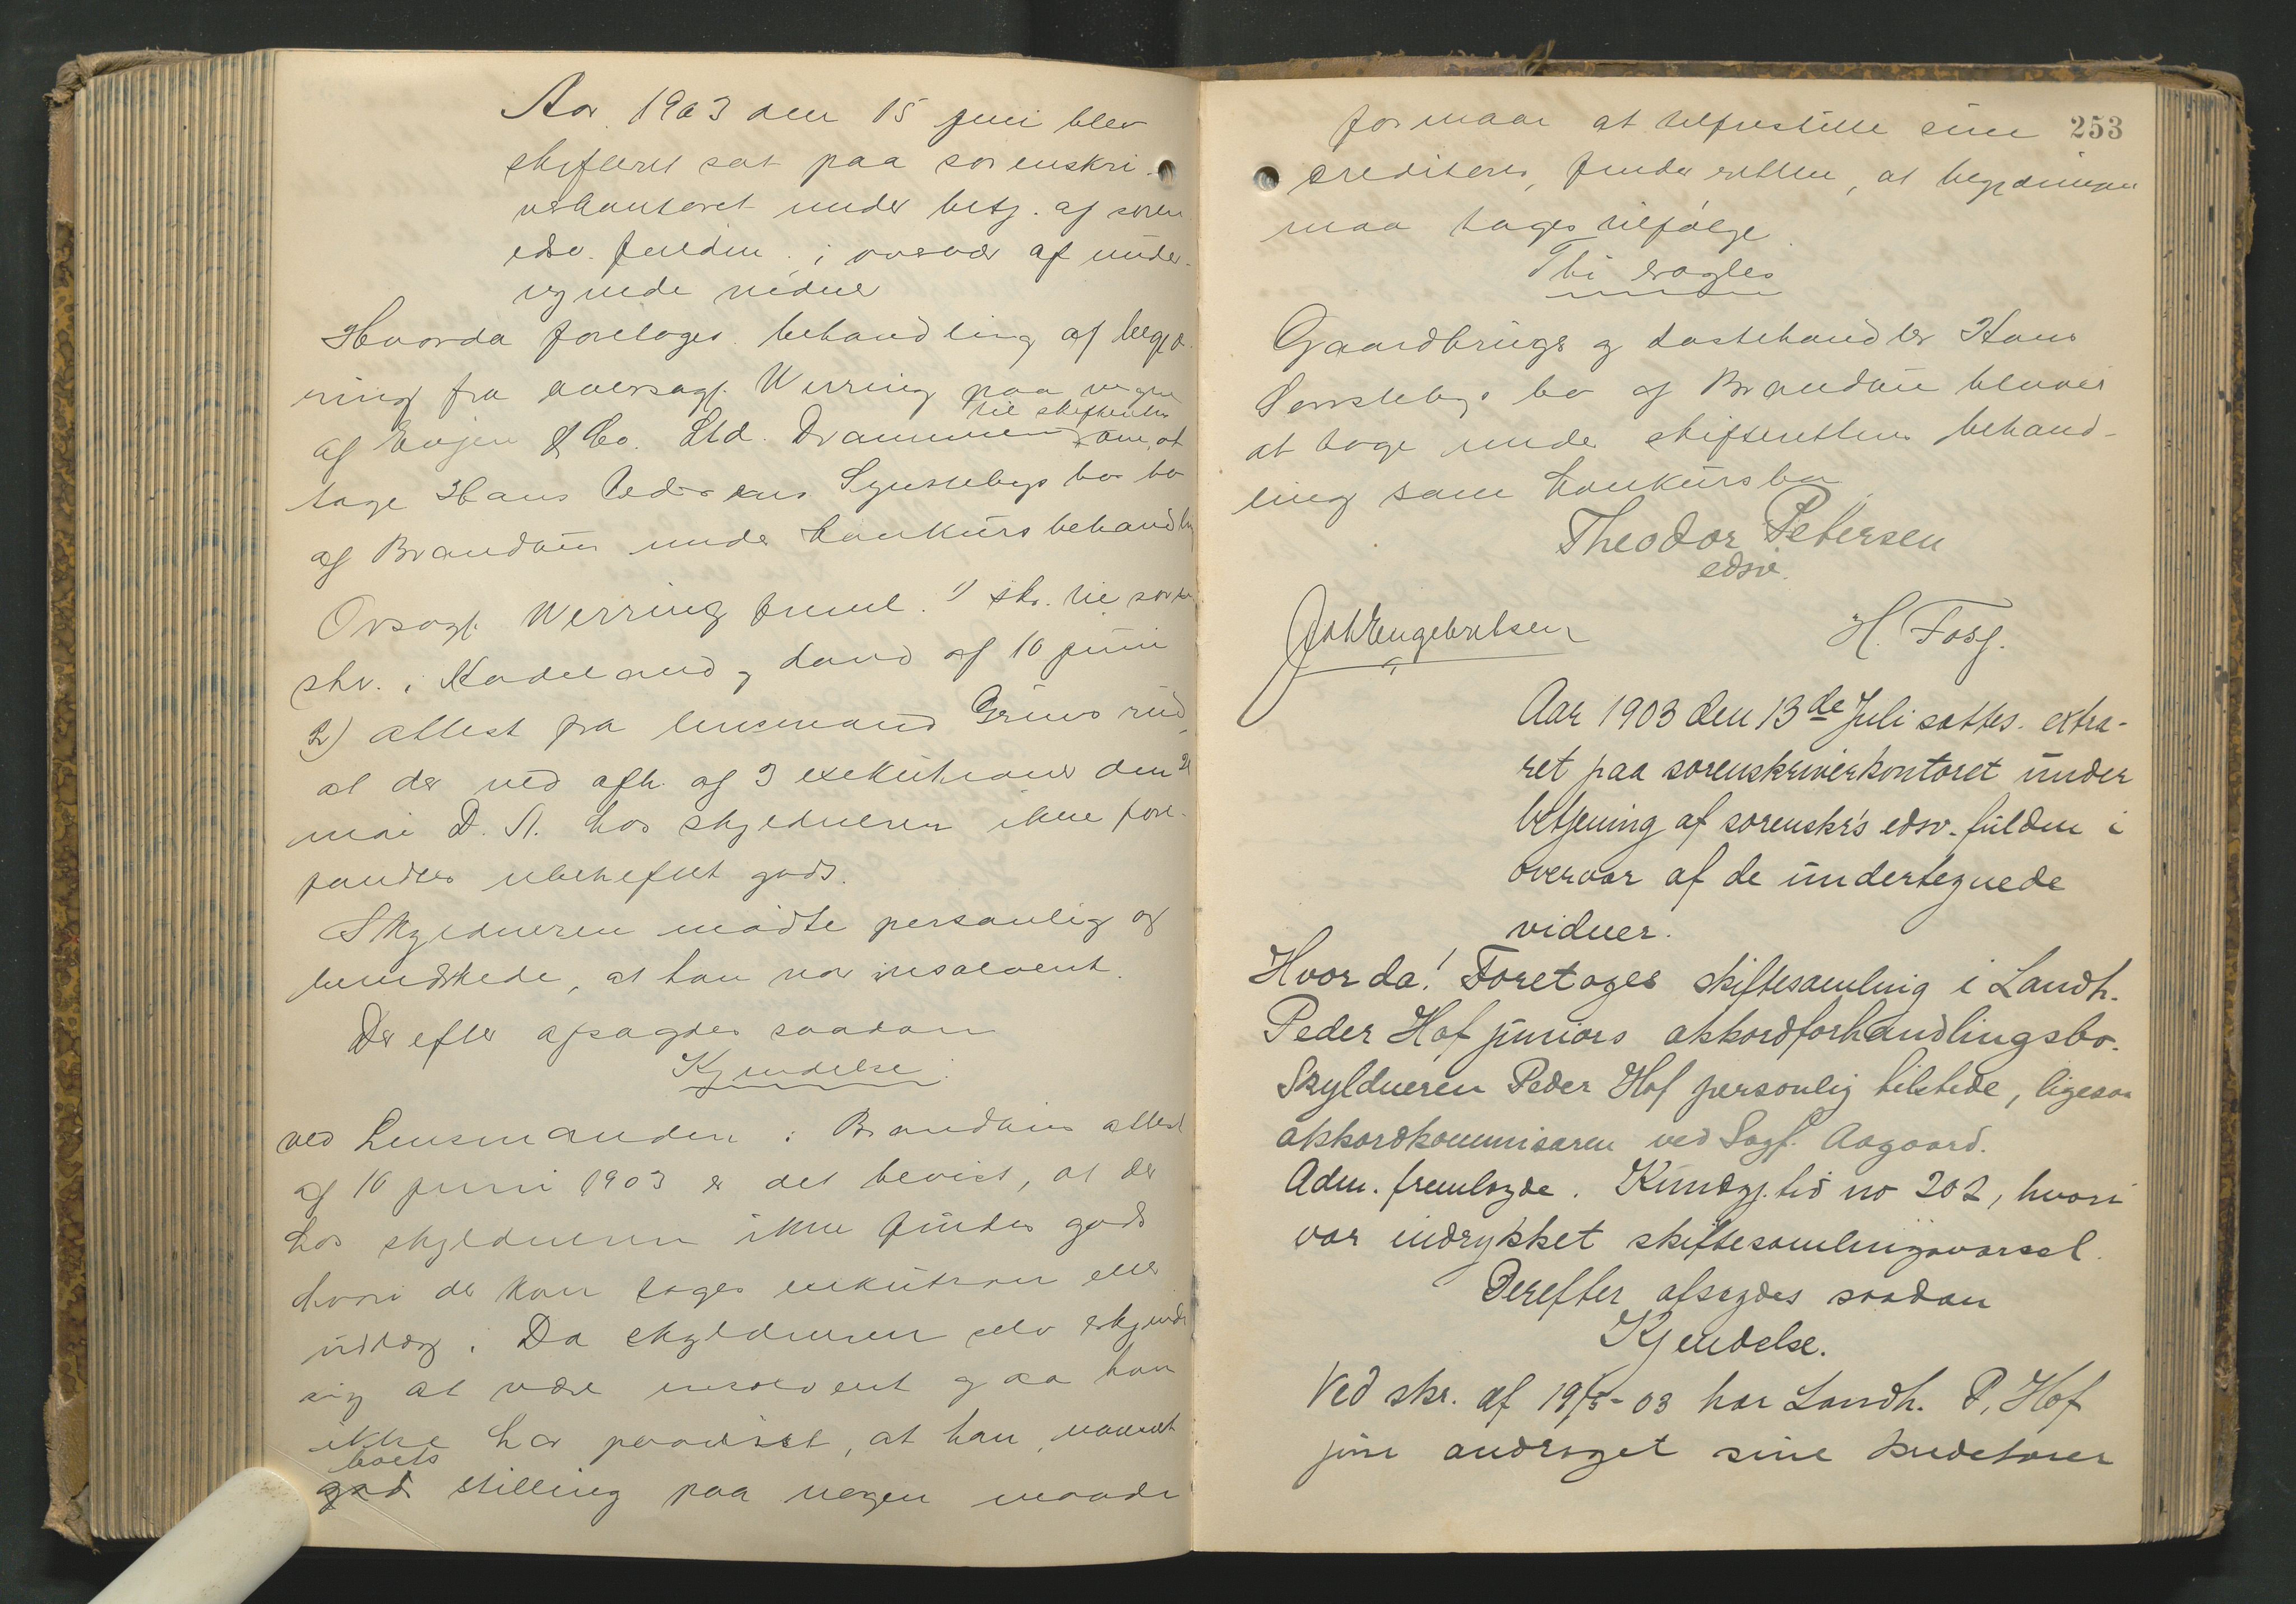 Aar 1903 den 15 juni blev
skifteret sat paa sorenskri-
verkontoret under betj. af soren
edsv. fuldm. i overvær af under-
tegnede vidner
Hvorda foretoges behandling af begjæ-
ring fra oversagf. Werring paa vegne
af & Co. Ltd. Drammen til skifteretten om at
tage Hans Pedersens bo
af Brandbu under konkursbehandling
Ovsagf. Werring freml. 1) skr. til soren
skr. i Hadeland og Land af 10 juni
2) attest fra lensmand
at der ved afh. af 3 exekutioner den 21
mai D. A. hos skyldneren ikke fore-
fandtes ubeheftet gods.
Skyldneren mødte personlig og
bemærkede, at han var insolvent.
Derefter afsagdes saadan
Kjendelse.
Ved Lensmanden i Brandbus attest
af 10 juni 1903 er det bevist, at der
hos skyldneren ikke findes gods
hvori der kan tages exekution eller
udlæg. Da skyldneren selv erkjender
sig at være insolvent og da han
ikke har paavist, at han, uanseet
boets stilling paa nogen maade
253
formaar at tilfredstille sine
creditores, finder retten, at begjæringen
maa tages tilfølge.
Thi eragtes
Gaardbruger og Hans
bo af Brandbu bliver
at tage under skifterettens behand-
ling som konkursbo.
Theodor Petersen
edsv.
Joh Engebretsen H. Fosj.
Aar 1903 den 13de Juli sattes extra-
ret paa sorenskriverkontoret under
betjening af sorenskr's edsv. fuldm i
overvær af de undertegnede
vidner.
Hvorda! Foretoges skiftesamling i Landh.
Peder Hof juniors akkordforhandlingsbo.
Skyldneren Peder Hof personlig tilstede, ligesaa
akkordkommisæren ved Sagf. Aagaard.
Adm. fremlagde. Kundgj.tid no 202, hvori
var indrykket skiftesamlingsvarsel.
Derefter afsagdes saadan
Kjendelse.
Ved skr. af 19/5-03 har Landh. P. Hof
jun andraget sine kreditorer